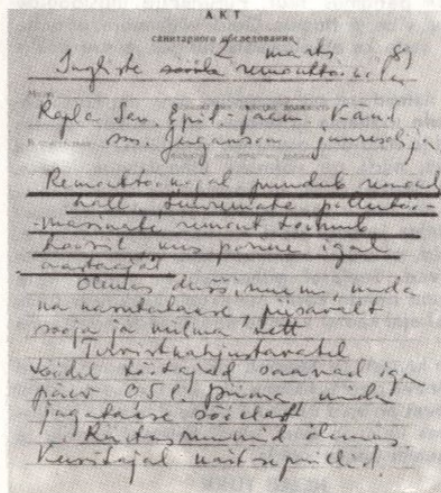 АКТ
санитарного обследования
2 märts 89
Ingliste remonttöökoda
Rapla San. Epid.-jaam. Känd
sm. Jürgenson juuresolija
Remonttöökojal puudub remondi-
hall. Suuremate põllutöö-
masinate remont toimub
hoovil, kus porine igal
aastaajal
Olemas dušširuum, mida
ka kasutatakse, piisavalt
sooja ja külma vett
Tervistkahjustavatel
töödel töötajad saavad iga
päev 0,5 l. piima mida
jagatakse sööklast
Riietusruumid olemas.
Keevitajal kaitseprillid.